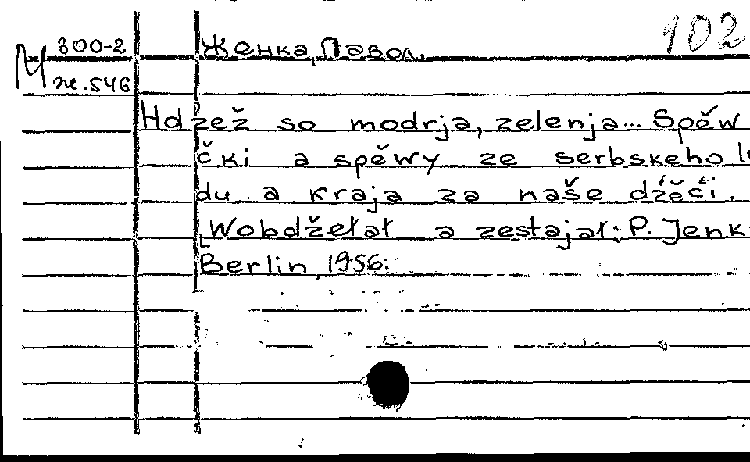 102
М 800-2
Женка, Павол.
ж.546
Hdźež so modrja, zelenja... Spěw
čki a spěwy ze serbskeho lu
du a kraja za naše dźěći.
[Wobdźěłał a zestajał: P. Jenk
Berlin, 1956.